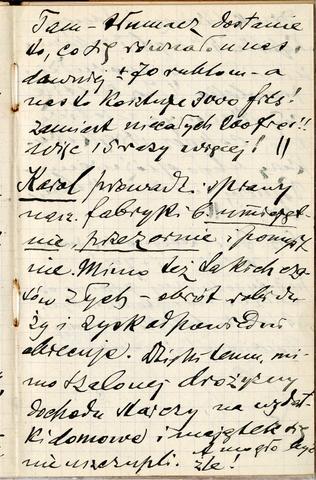 Tam – tłumacz dostanie
to, co się równało u nas
dawniej ± 70 rublom – a
nas to kosztuje 3000 frcs!
zamiast niecałych 200 frcs!!
Więc 15 razy więcej! !!
Karol prowadzi sprawy
nasz. fabryki b. umiejęt-
nie, przezornie i pomyśl-
nie. Mimo też takich cza-
sów złych – obrót robi du-
ży i zysk odpowiedni
obiecuje. Dzięki temu, mi-
mo szalonej drożyzny
dochodu starczy na wydat-
ki domowe i majątek się
nie uszczupli. A mogło być
źle!